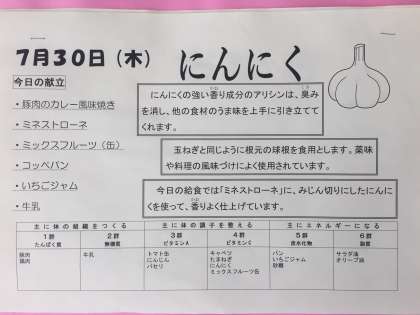 7月30日（木）
にんにく
今日の献立
・豚肉のカレー風味焼き
・ミネストローネ
・ミックスフルーツ（缶）
・コッペパン
・いちごジャム
・牛乳
にんにくの強い香り成分のアリシンは、臭み
を消し、他の食材のうま味を上手に引き立てて
くれます。
玉ねぎと同じように根元の球根を食用とします。薬味
や料理の風味づけによく使用されています。
今日の給食では「ミネストローネ」に、みじん切りにしたにんに
くを使って、香りよく仕上げています。
主に体の組織をつくる 主に体の調子を整える 主にエネルギーになる
1群 2群 3群 4群 5群 6群
たんぱく質 無機質 ビタミンA ビタミンC 炭水化物 脂質
豚肉 牛乳 トマト缶 キャベツ パン サラダ油
鶏肉 にんじん たまねぎ いちごジャム オリーブ油
パセリ にんにく 砂糖
ミックスフルーツ缶